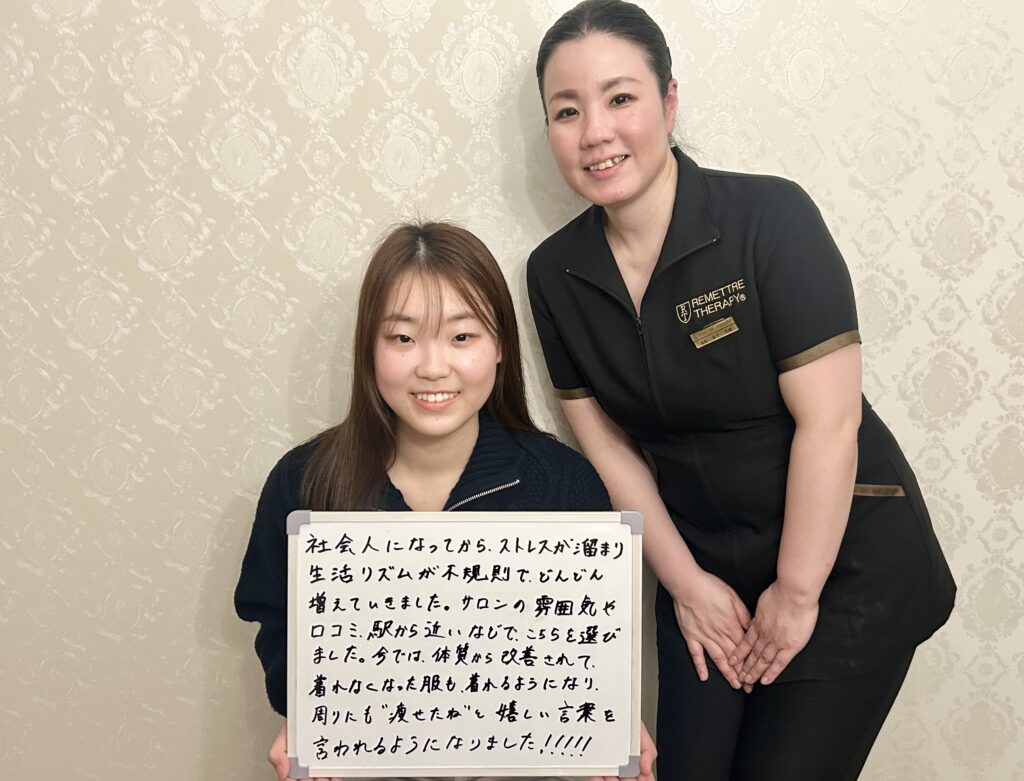 REMETTRE
THERAPY®
社会人になってから、ストレスが溜まり
生活リズムが不規則で、どんどん
増えていきました。サロンの雰囲気や
口コミ、駅から近いなどで、こちらを選び
ました。今では、体質から改善されて、
着れなくなった服も、着れるようになり、
周りにも"痩せたね"と嬉しい言葉を
言われるようになりました!!!!!